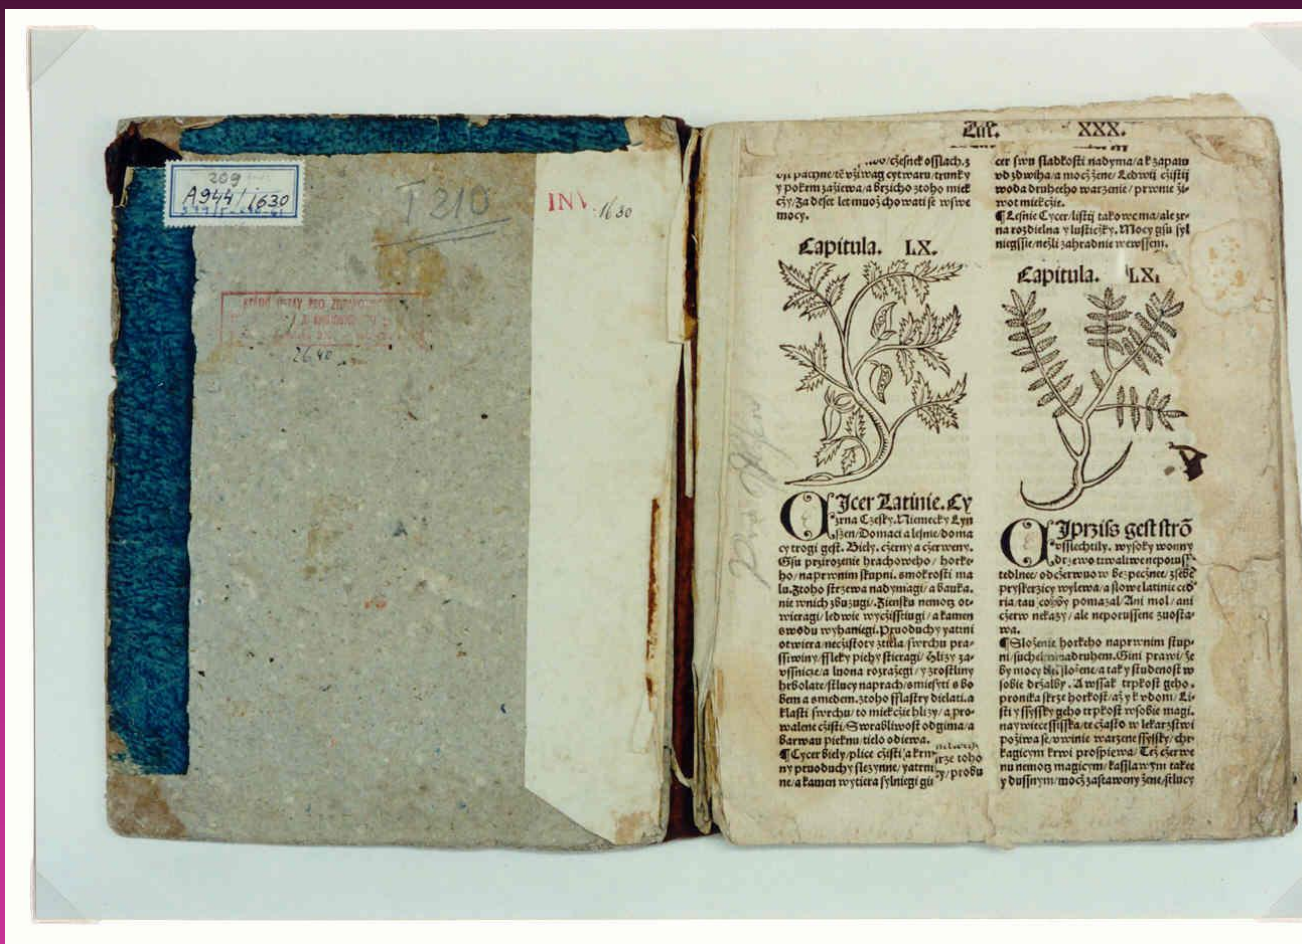 209
A944/1630
T 210
INV. 1630
2640
List. XXX.
/cżesnek osslach. z
y pokrm zażiewa/a brzicho ztoho miek
cży/Za deset let muož chowati se wswe
mocy.
Capitula. LX.
CIcer Latinie. Cy
zrna Czesky. Niemecky Kyn
szen/Domaci a lesnie/doma
cy trogi gest. Biely. cżerny a cżerweny.
Gsu przirozenie hrachoweho/horke-
ho/naprwnim stupni. smokrosti ma
lu. Ztoho strzewa nadymagi/a bauka.
nie wnich zbuzugi. Ziensku nemoc ot-
wieragi/ledwie wycżisstiugi/a kamen
swodu wyhaniegi. Pruoduchy yatrni
otwiera/necżistoty ztiela/swrchu pra-
ssiwiny/fleky piehy stieragi/Hlizy za-
vssnicze/a luona rozrażegi/y zrostliny
hrbolate/stlucy naprach/smiesyti s bo
bem a smedem. ztoho fflastry dielati. a
klasti swrchu/to miekcżie hlizy/a pro-
walene cżisti/Swrabliwost odgima/a
barwau pieknu/tielo odiewa.
¶ Cycer biely/plice cżisti/a krm
ny pruoduchy slezynne/yatrni
ne/a kamen wytiera sylniegi
rze toho
cy/probu
cer swu sladkosti nadyma/a k zapalu
vd zdwiha/a mocż żene/Ledwij cżistij
woda druheeho warzenie/prwnie żi-
wot miekcżie.
¶ Lesnie Cycer/listij takowe ma/ale zr-
na rozdielna y lusticżky. Mocy gsu syl
niegssie/neżli zahradnie wewssem.
Capitula. LXI
CIprziss gest strō
vsslechtily. wysoky wonny
drzewo trwaliwe neporuss-
tedlnee/od cżerwuow bezpecżnee/zsebe
pryskerzicy wylewa/a slowe latinie ced
ria/tau cożby pomazal/Ani mol/ani
cżerw nekazy/ale neporussene zuosta-
wa.
¶ Slożenie horkeho naprwnim stup-
ni/sucheho nadruhem. Gini prawi/że
by mocy byl slożene/a taky studenost w
sobie drżalby. A wssak trpkost geho.
pronika skrze horkost/aż y k vdom/Li-
sti y ssyssky geho trpkost wsobie magi.
naywiecessisska/te cżasto w lekarzstwi
pożiwa se/owinie warzene ssyssky/chr-
kagicym krwi prospiewa/Też cżerwe
nu nemoc magicym/kasslawym takee
y dussnym/mocż zastaweny żene/stlucy